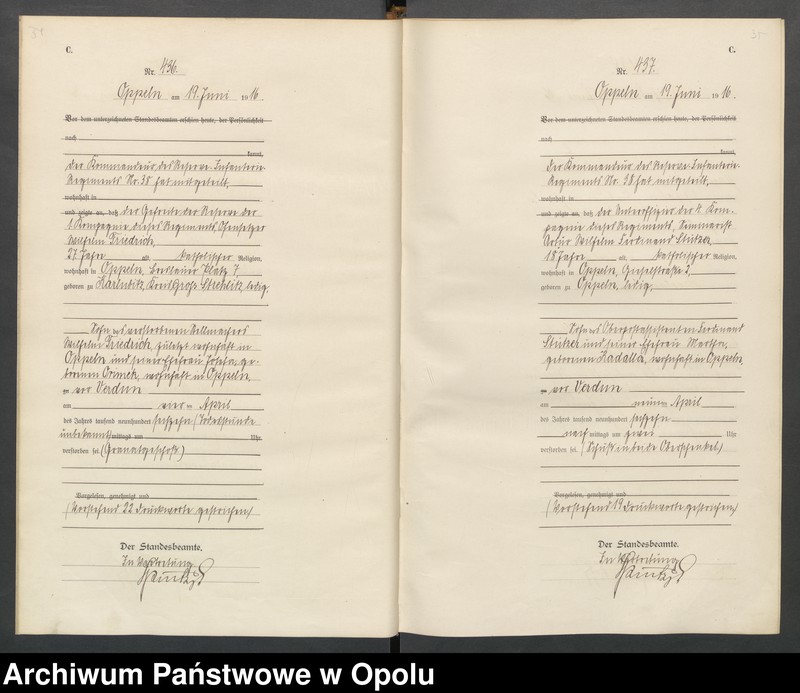 C.
Nr. 436.
Oppeln am 19. Juni 1916.
Vor dem unterzeichneten Standesbeamten erschien heute, der Persönlichkeit
nach
kannt,
Der Kommandeur des Reserve-Infanterie-
Regiments Nr. 38 hat mitgeteilt,
wohnhaft in
und zeigte an, daß der Gefreite der Reserve der
Kompagnie dieses Regiments, Ofensetzer
Wilhelm Friedrich,
27 Jahre alt, katholischer Religion,
wohnhaft in Oppeln, Breslauer Platz 7,
geboren zu Kreis Groß Strehlitz, ledig,
Sohn des verstorbenen Stellmachers
Wilhelm Friedrich, zuletzt wohnhaft in
Oppeln und seiner Ehefrau Josefa, ge-
borenen wohnhaft in Oppeln,
zu vor Verdun
am vierten April
des Jahres tausend neunhundert sechzehn (Todesstunde
unbekannt) mittags um Uhr
verstorben sei. (Granatgeschoß)
Vorgelesen, genehmigt und
(Vorstehend 22 Druckworte gestrichen)
Der Standesbeamte.
In Vertretung
35
C.
Nr. 437.
Oppeln am 19. Juni 1916.
Vor dem unterzeichneten Standesbeamten erschien heute, der Persönlichkeit
nach
kannt,
Der Kommandeur des Reserve-Infanterie-
Regiments Nr. 38 hat mitgeteilt,
wohnhaft in
und zeigte an, daß der Unteroffizier der 4. Kom-
pagnie dieses Regiments, Seminarist
Artur Wilhelm Ferdinand Stützer,
18 Jahre alt, katholischer Religion,
wohnhaft in Oppeln, 2,
geboren zu Oppeln, ledig,
Sohn des Oberpostassistenten Ferdinand
Stützer und seiner Ehefrau Martha,
geborenen Kadalla, wohnhaft in Oppeln,
zu vor Verdun
am neunten April
des Jahres tausend neunhundert sechzehn
nach mittags um zwei Uhr
verstorben sei. (Schuß in beide Oberschenkel)
Vorgelesen, genehmigt und
(Vorstehend 19 Druckworte gestrichen)
Der Standesbeamte.
In Vertretung
Archiwum Państwowe w Opolu